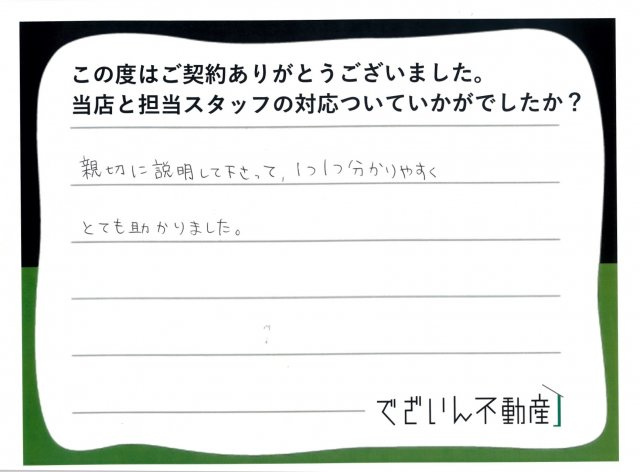 この度はご契約ありがとうございました。
当店と担当スタッフの対応ついていかがでしたか？
親切に説明して下さって、1つ1つ分かりやすく
とても助かりました。
でざいん不動産